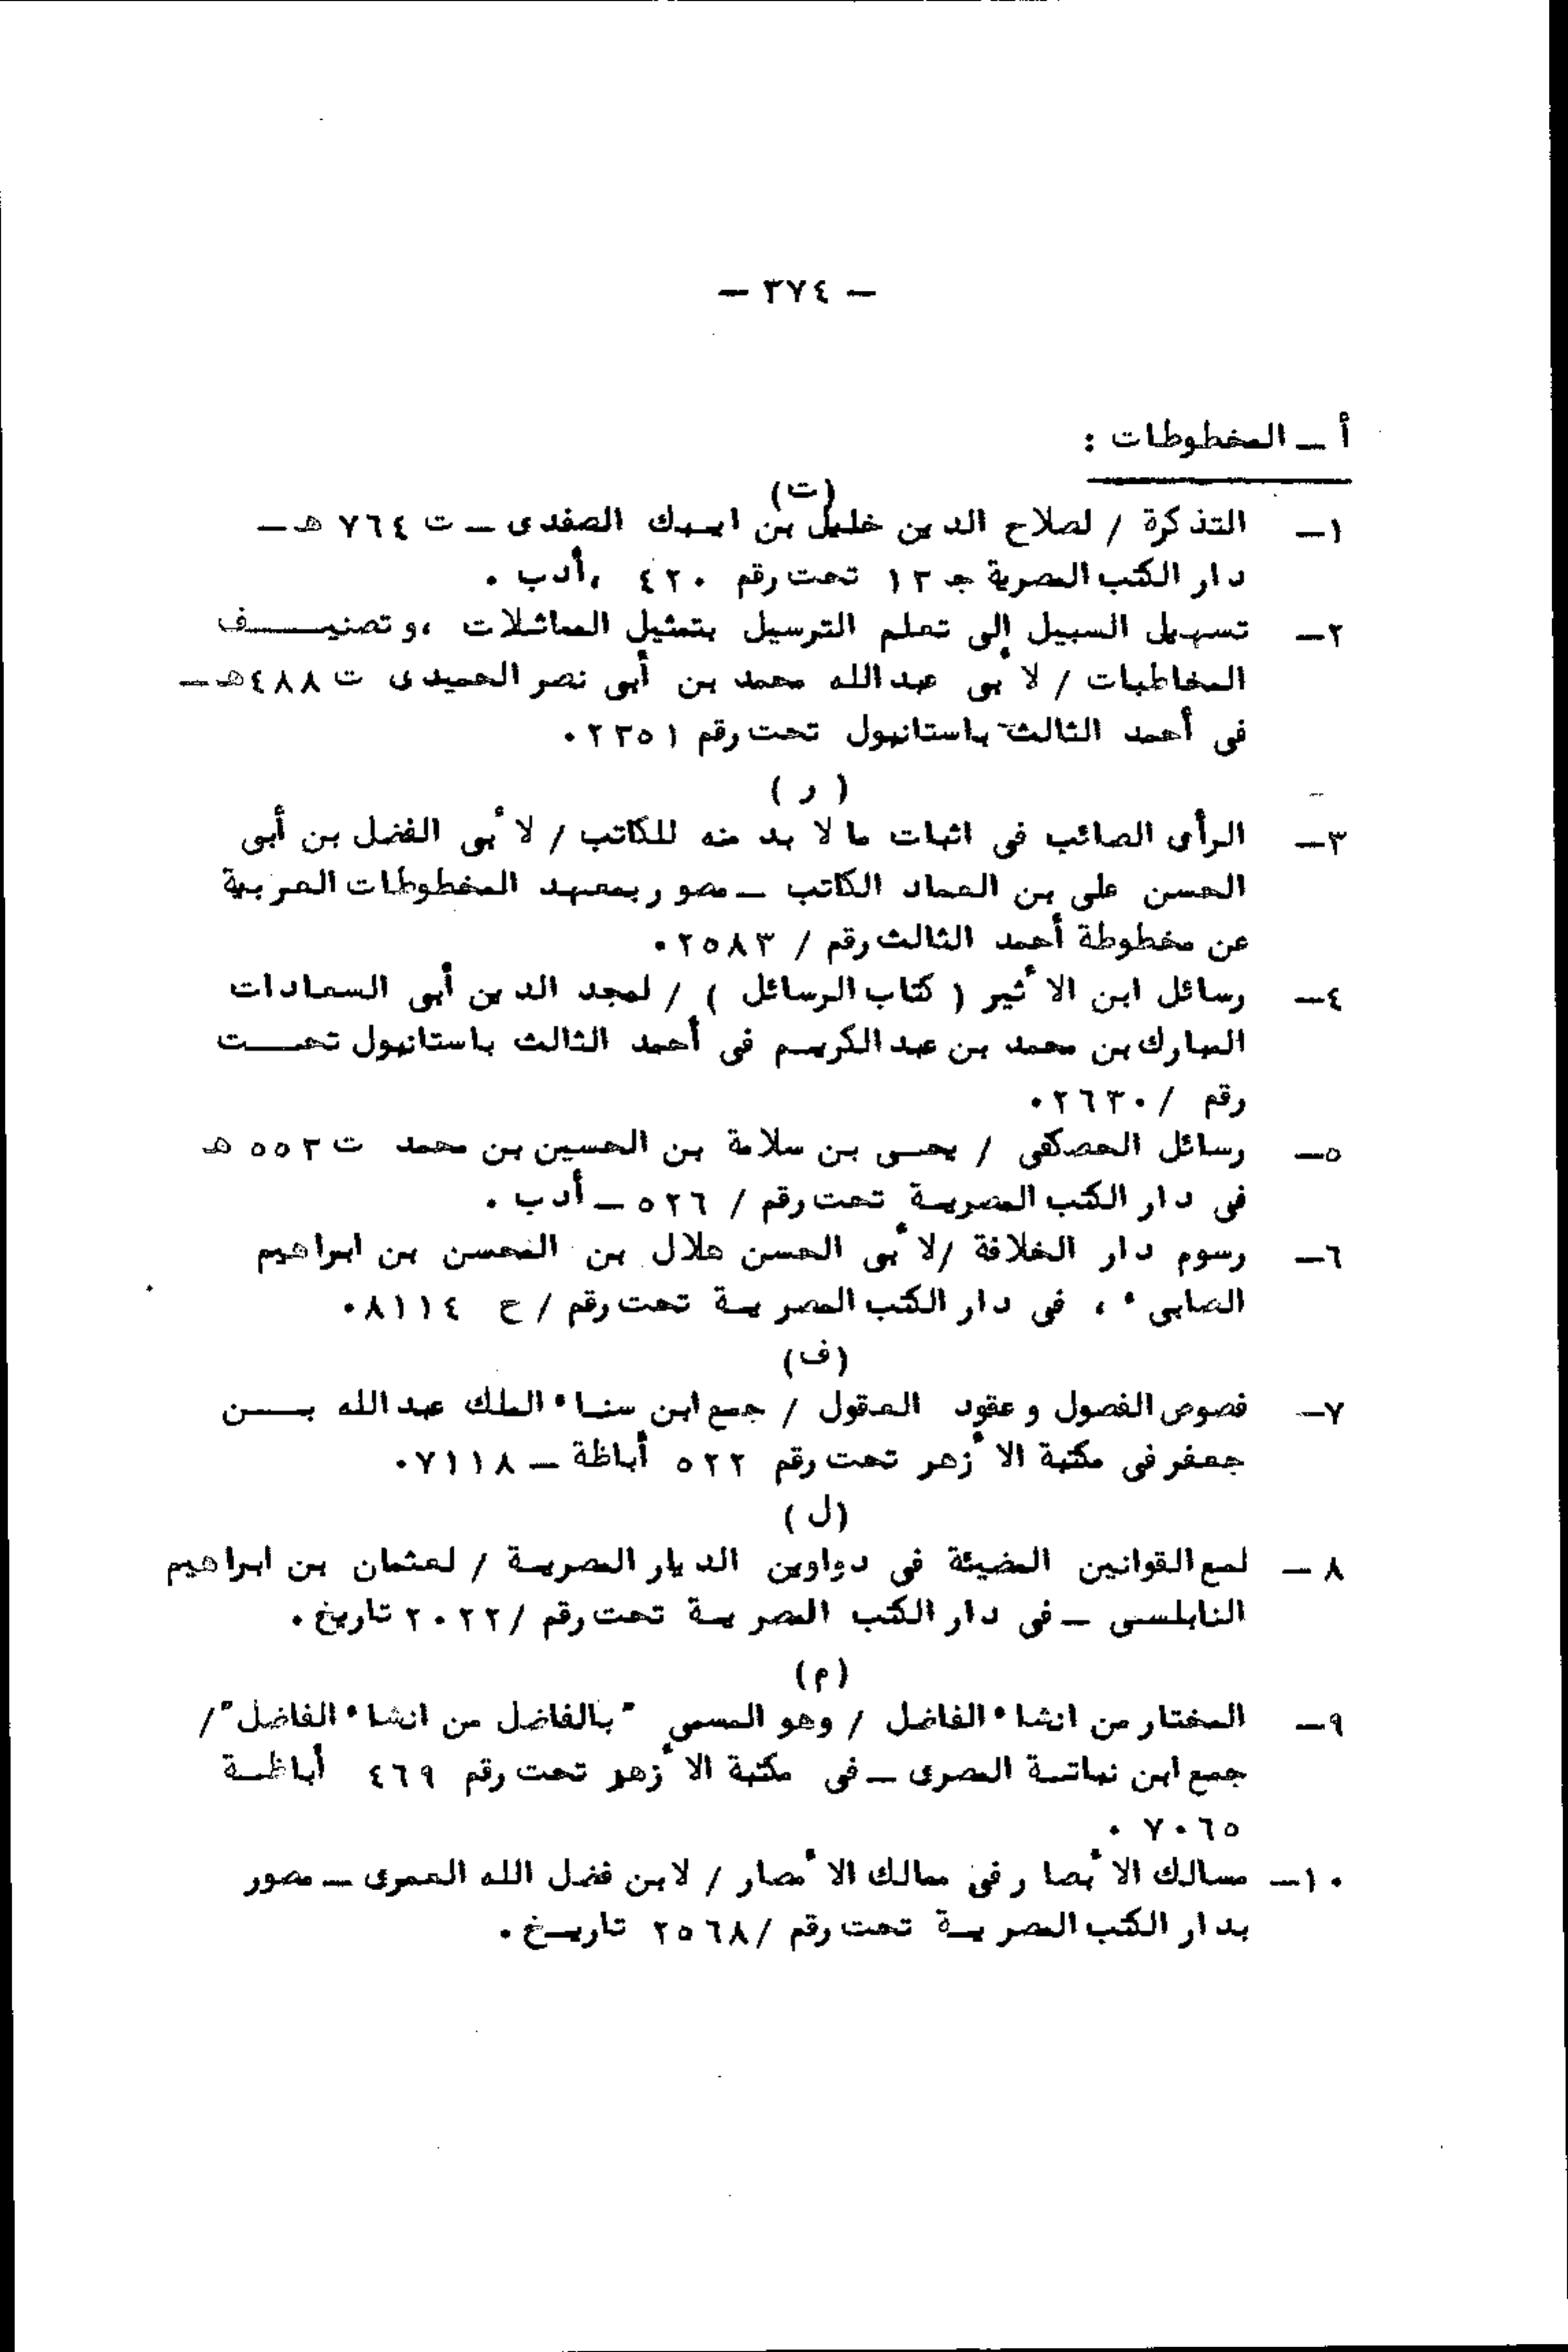 — ٣٧٤ —
أ — المخطوطات :
(ت)
١— التذكرة / لصلاح الدين خليل بن ايبك الصفدى — ت ٧٦٤ هـ —
دار الكتب المصرية جـ ١٣ تحت رقم ٤٢٠ ،أدب .
٢— تسهيل السبيل إلى تعلم الترسيل بتمثيل المماثلات ،وتصنيف
المخاطبات / لأبى عبدالله محمد بن أبى نصر الحميدى ت ٤٨٨هـ —
فى أحمد الثالث باستانبول تحت رقم ٢٣٥١.
(ر)
٣— الرأى الصائب فى اثبات ما لا بد منه للكاتب / لأبى الفضل بن أبى
الحسن على بن العماد الكاتب — مصور بمعهد المخطوطات العربية
عن مخطوطة أحمد الثالث رقم / ٢٥٨٣.
٤— رسائل ابن الأثير ( كتاب الرسائل ) / لمجد الدين أبى السعادات
المبارك بن محمد بن عبد الكريم فى أحمد الثالث باستانبول تحت
رقم / ٢٦٣٠.
٥— رسائل الحصكفى / يحيى بن سلامة بن الحسين بن محمد ت ٥٥٢ هـ
فى دار الكتب المصرية تحت رقم / ٥٢٦ — أدب .
٦— رسوم دار الخلافة /لأبى الحسن هلال بن المحسن بن ابراهيم
الصابىء ، فى دار الكتب المصرية تحت رقم / ح ٨١١٤.
(ف)
٧— فصوص الفصول وعقود العقول / جمع ابن سناء الملك عبدالله بن
جعفر فى مكتبة الأزهر تحت رقم ٥٢٢ أباظة — ٧١١٨.
(ل)
٨ — لمع القوانين المضيئة فى دواوين الديار المصرية / لعثمان بن ابراهيم
النابلسى — فى دار الكتب المصرية تحت رقم /٢٠٢٢ تاريخ .
(م)
٩— المختار من انشاء الفاضل / وهو المسمى "بالفاضل من انشاء الفاضل"/
جمع ابن نباتة المصرى — فى مكتبة الأزهر تحت رقم ٤٦٩ أباظة
٧٠٦٥ .
١٠— مسالك الأبصار فى ممالك الأمصار / لابن فضل الله العمرى — مصور
بدار الكتب المصرية تحت رقم /٢٥٦٨ تاريخ .